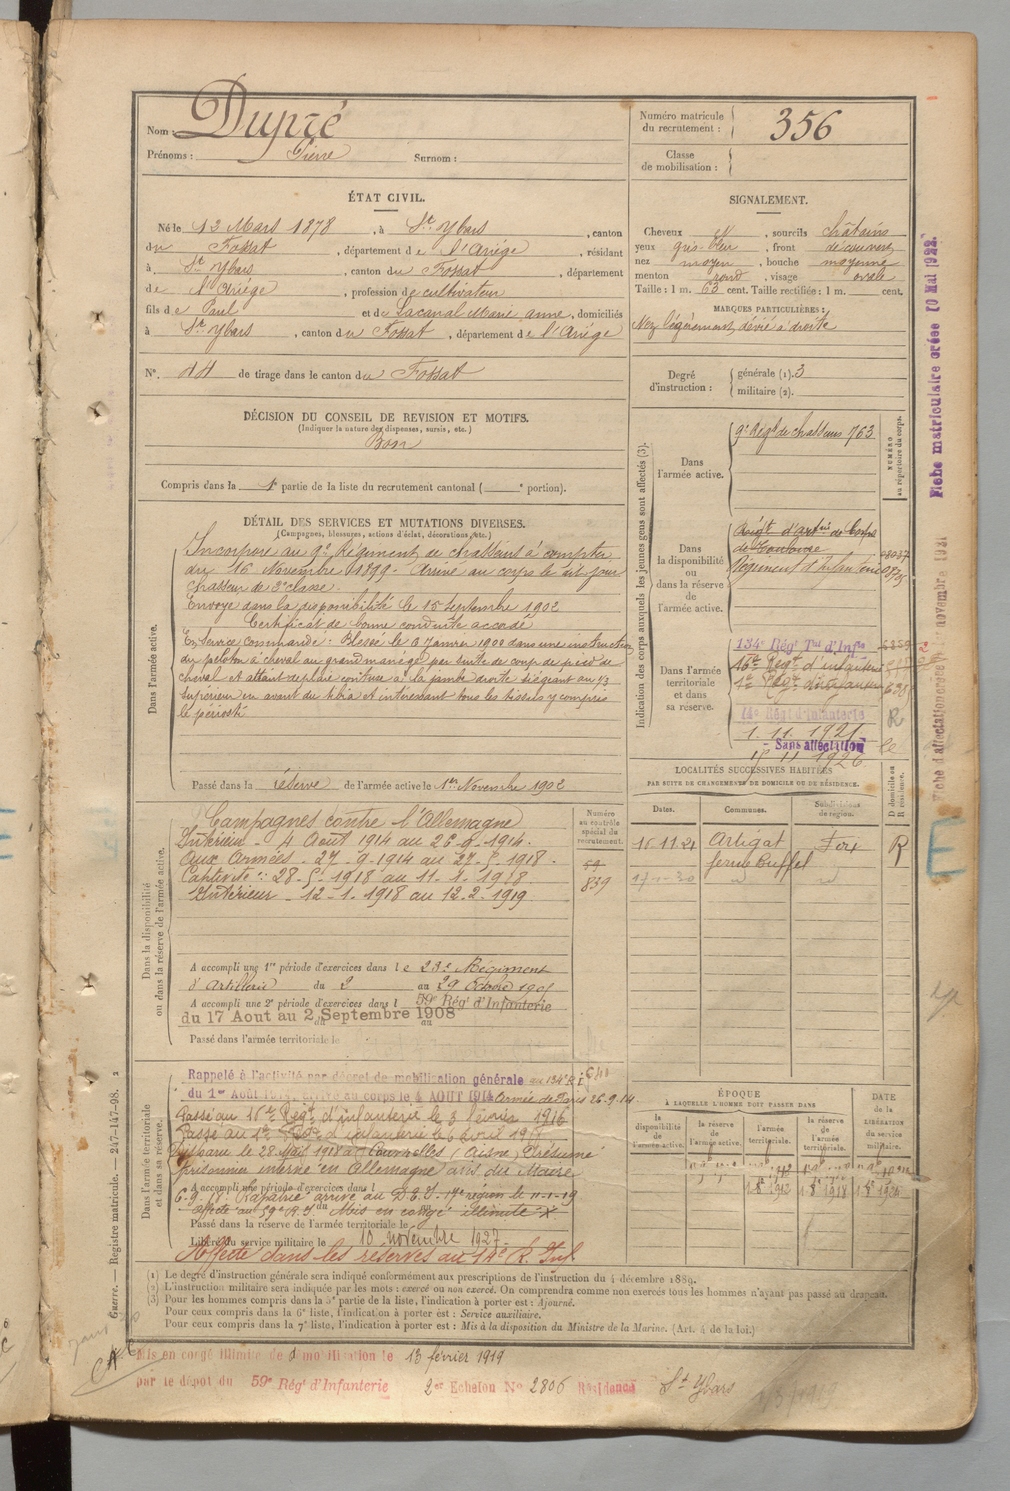 Nom : Dupré
Prénoms : Pierre Surnom :
Numéro matricule du recrutement : 356
Classe de mobilisation :
ÉTAT CIVIL.
Né le 13 Mars 1878, à St Ybars, canton
du Fossat, département de l'Ariège, résidant
à St Ybars, canton du Fossat, département
de l'Ariège, profession de cultivateur
fils de Paul et de Lacanal Marie anne, domiciliés
à St Ybars, canton du Fossat, département de l'Ariège
N° 14 de tirage dans le canton du Fossat
SIGNALEMENT.
Cheveux , sourcils châtains
yeux gris-bleu, front découvert
nez moyen, bouche moyenne
menton rond, visage ovale
Taille : 1 m. 63 cent. Taille rectifiée : 1 m. cent.
MARQUES PARTICULIÈRES :
Nez légèrement dévié à droite
Degré d'instruction : générale (1). 3
militaire (2).
DÉCISION DU CONSEIL DE REVISION ET MOTIFS.
(Indiquer la nature des dispenses, sursis, etc.)
Bon
Compris dans la 1e partie de la liste du recrutement cantonal ( e portion).
DÉTAIL DES SERVICES ET MUTATIONS DIVERSES.
(Campagnes, blessures, actions d'éclat, décorations, etc.)
Dans l'armée active.
Incorporé au 9e Régiment de chasseurs à compter
du 16 Novembre 1899. Arrivé au corps le dit jour
chasseur de 2e classe.
Envoyé dans la disponibilité le 15 Septembre 1902
Certificat de bonne conduite accordé
En service commandé : Blessé le 6 Janvier 1900 dans une instruction
du peloton à cheval au grand manège par suite de coup de pied de
cheval et atteint de plaie contuse à la jambe droite siégeant au 1/3
supérieur en avant du tibia et intéressant tous les tissus y compris
le périoste
Passé dans la réserve de l'armée active le 1er Novembre 1902
Indication des corps auxquels les jeunes gens sont affectés (3).
NUMÉRO au répertoire du corps.
Dans l'armée active.
9e Régt de chasseurs 763
Dans la disponibilité ou dans la réserve de l'armée active.
Régt d'artrie de Corps
de Toulouse
Régiment d'infanterie
Dans l'armée territoriale et dans sa réserve.
134e Régt Tal d'Infie
16e Régt d'infanterie
1er Régt d'infanterie 638
14e Régt d'Infanterie R
1.11.1921
- Sans affectation
11 1926
LOCALITÉS SUCCESSIVES HABITÉES
PAR SUITE DE CHANGEMENTS DE DOMICILE OU DE RÉSIDENCE.
Dates. Communes. Subdivisions de région. D domicile ou R résidence.
16.11.21 Artigat Foix R
ferme Buffel
Dans la disponibilité ou dans la réserve de l'armée active.
Numéro au contrôle spécial du recrutement.
59
839
Campagnes contre l'Allemagne
Intérieur - 4 Août 1914 au 26-9-1914.
Aux Armées - 27-9-1914 au 27-5-1918.
Captivité : 28-5-1918 au 11-1-1918.
Intérieur - 12-1-1918 au 12-2-1919.
A accompli une 1re période d'exercices dans le 23e Régiment
d'artillerie du 2 au 29 Octobre 1905
A accompli une 2e période d'exercices dans l 59e Régt d'Infanterie
du 17 Aout au 2 Septembre 1908
Passé dans l'armée territoriale le
Dans l'armée territoriale et dans sa réserve.
Rappelé à l'activité par décret de mobilisation générale au 134e R.I.
du 1er Août 1914. Arrivé au corps le 4 AOUT 1914 26-9-14
Passé au 16e Régt d'infanterie le 3 février 1916
Passé au 1er Régt d'infanterie le 6 avril
Disparu le 28 Mai 1918 à Cournelles (Aisne) Présumé
prisonnier interné en Allemagne avis du Maire
A accompli une période d'exercices dans l
6-9-18. Rapatrié arrivé au D.E.I. 17e région le 11-1-19
affecté au 59e R.I. Mis en congé illimité
Passé dans la réserve de l'armée territoriale le
Libéré du service militaire le 10 novembre 1927.
Affecté dans les réserves au 14e R. Inf
ÉPOQUE
A LAQUELLE L'HOMME DOIT PASSER DANS
la disponibilité de l'armée active. la réserve de l'armée active. l'armée territoriale. la réserve de l'armée territoriale.
DATE de la LIBÉRATION du service militaire.
(1) Le degré d'instruction générale sera indiqué conformément aux prescriptions de l'instruction du 4 décembre 1889.
(2) L'instruction militaire sera indiquée par les mots : exercé ou non exercé. On comprendra comme non exercés tous les hommes n'ayant pas passé au drapeau.
(3) Pour les hommes compris dans la 5e partie de la liste, l'indication à porter est : Ajourné.
Pour ceux compris dans la 6e liste, l'indication à porter est : Service auxiliaire.
Pour ceux compris dans la 7e liste, l'indication à porter est : Mis à la disposition du Ministre de la Marine. (Art. 4 de la loi.)
Mis en congé illimité de démobilisation le 13 février 1919
par le dépôt du 59e Régt d'Infanterie 2e Echelon No 2806 Résidence St Ybars
Guerre. — Registre matricule. — 247-147-98.
Fiche matriculaire créée 10 Mai 1922.
E